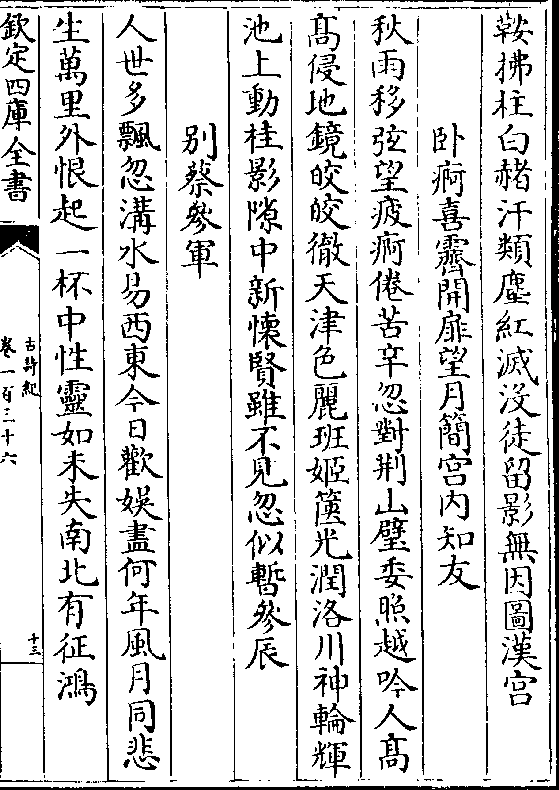 鞍拂柱白赭汗類塵紅滅没徒留影無因圖漢宫
卧痾喜霽開扉望月簡宫内知友
秋雨移弦望疲痾倦苦辛忽對荆山璧委照越吟人髙
髙侵地鏡皎皎徹天津色麗班姬篋光潤洛川神輪輝
池上動桂影隙中新懷賢雖不見忽似暫參辰
别蔡參軍
人世多飄忽溝水易西東今日歡娛盡何年風月同悲
生萬里外恨起一杯中性靈如未失南北有征鴻
欽定四庫全書
古詩紀
卷一百三十六
十三